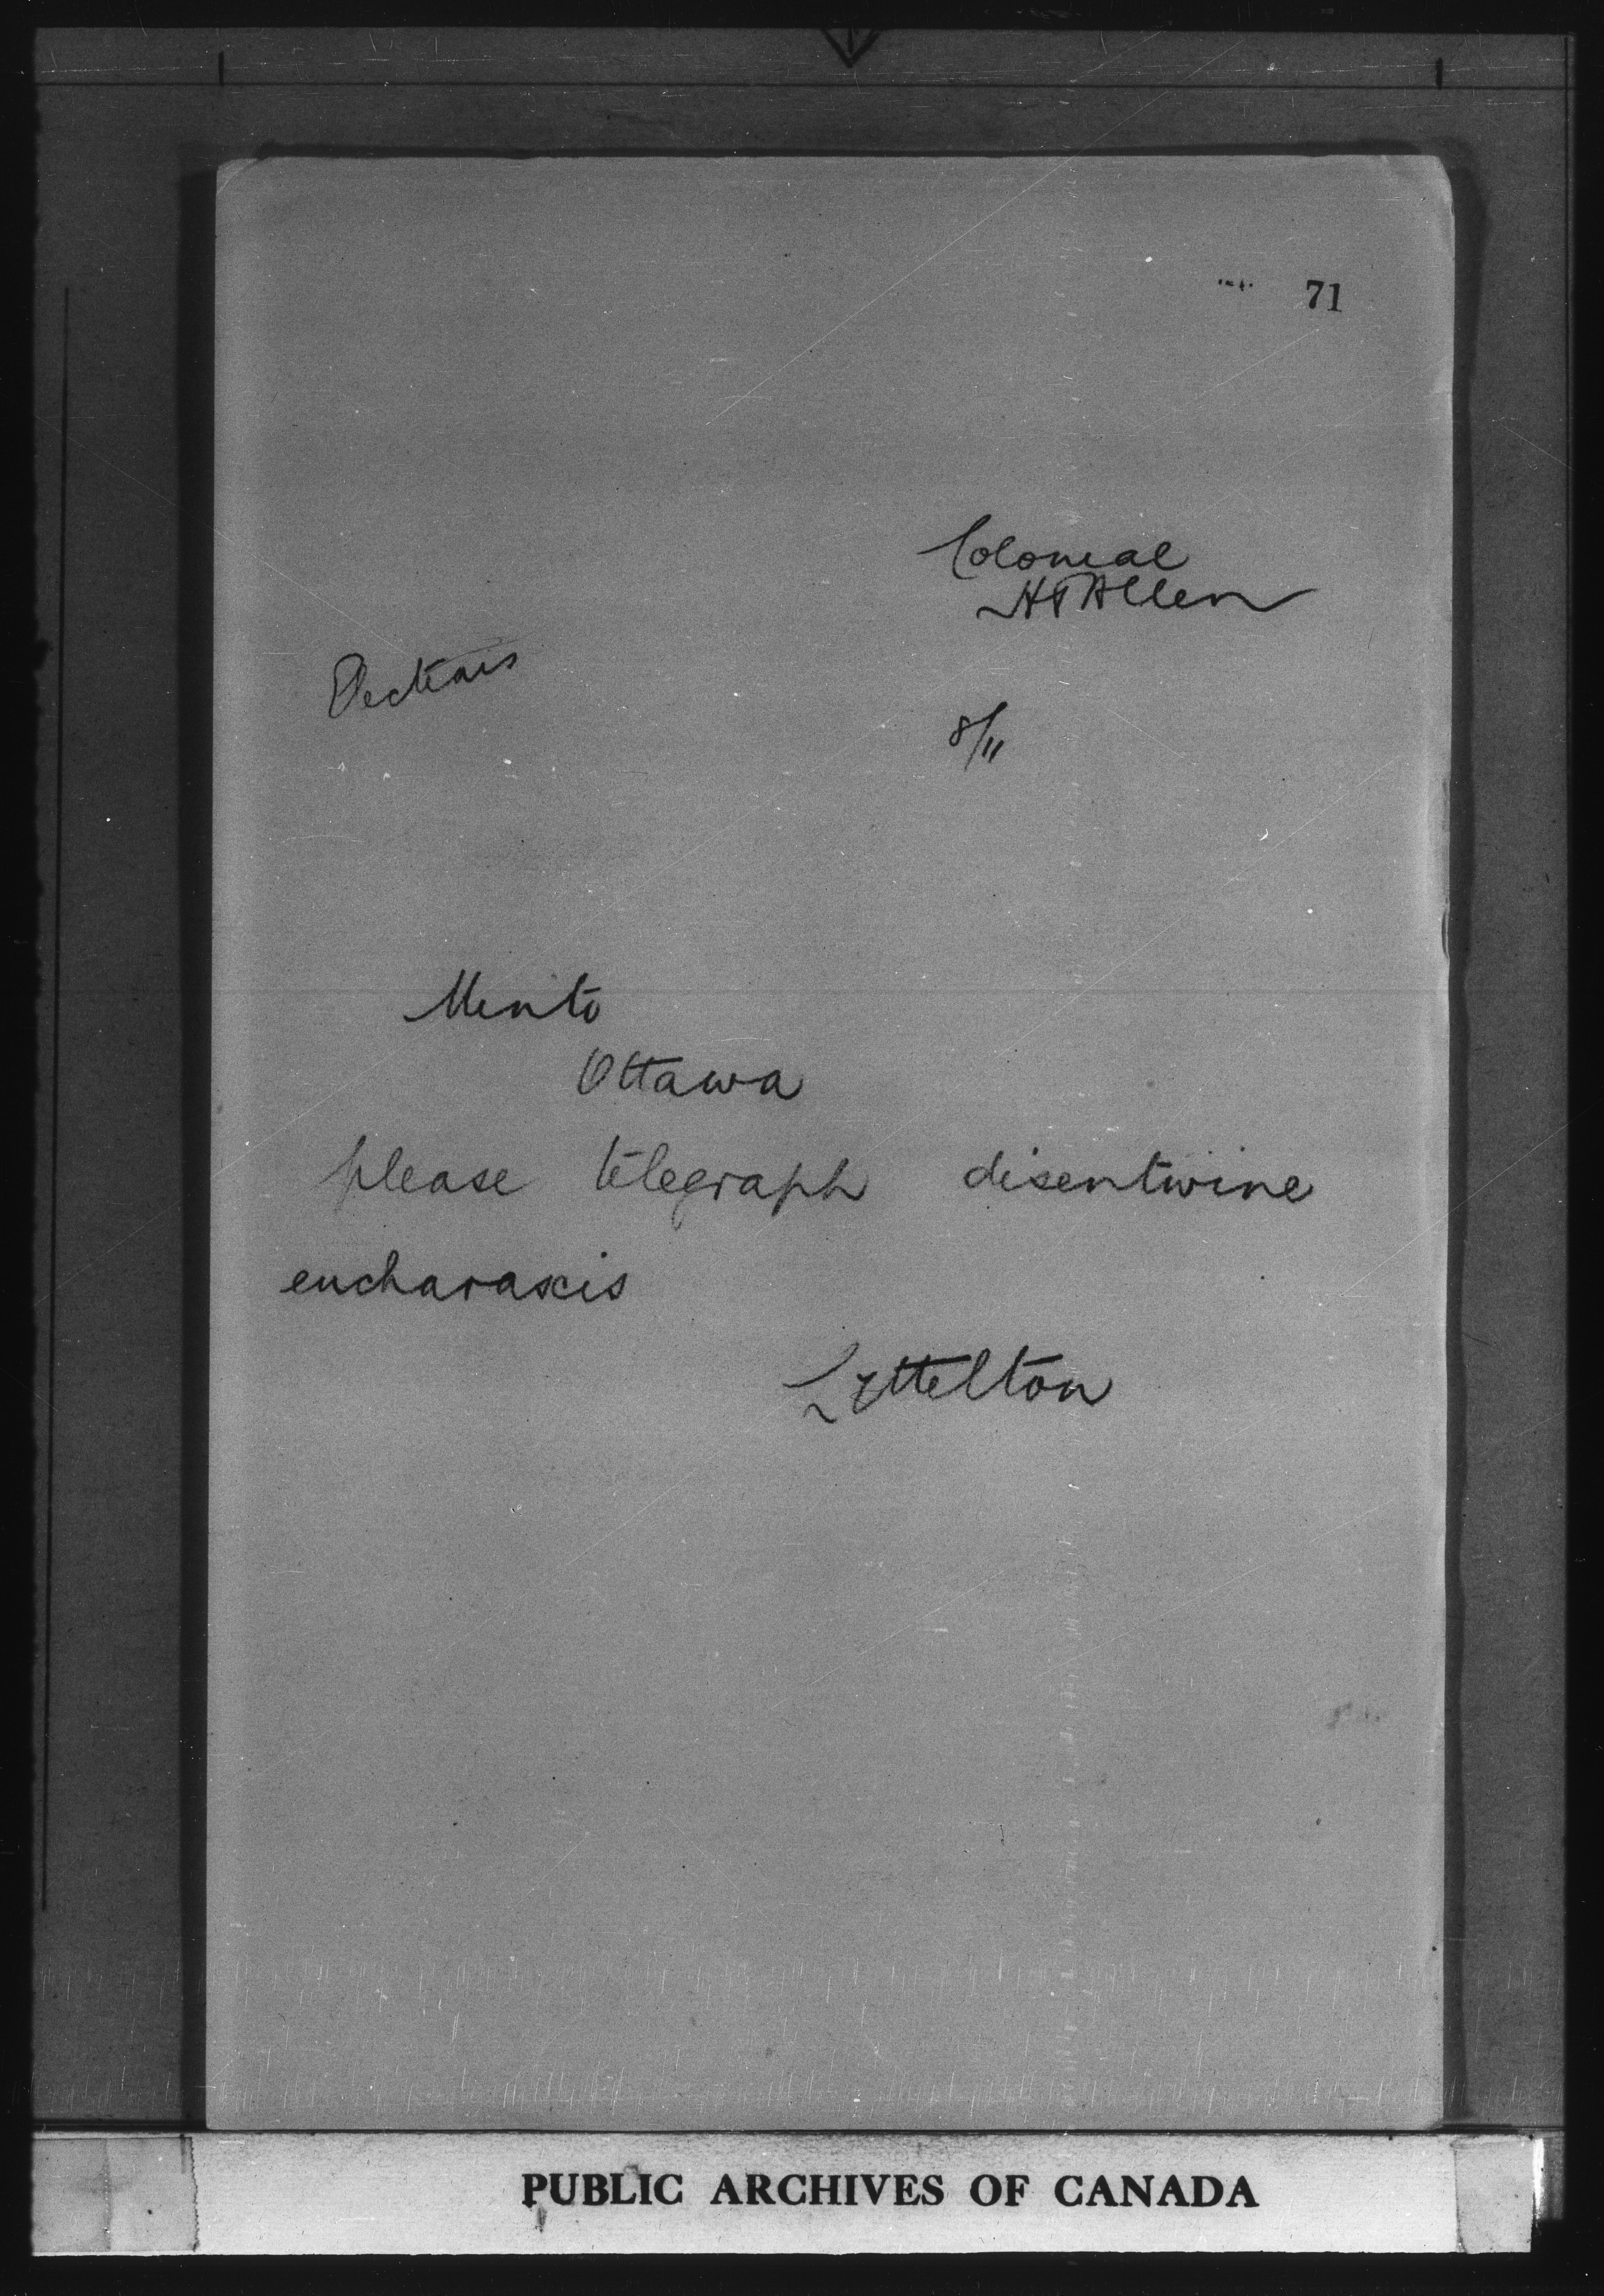 71
Colonial
H T Allen
Elections
8/11
Minto
Ottawa
please telegraph disentwine
eucharaxis
Lyttelton
PUBLIC ARCHIVES OF CANADA